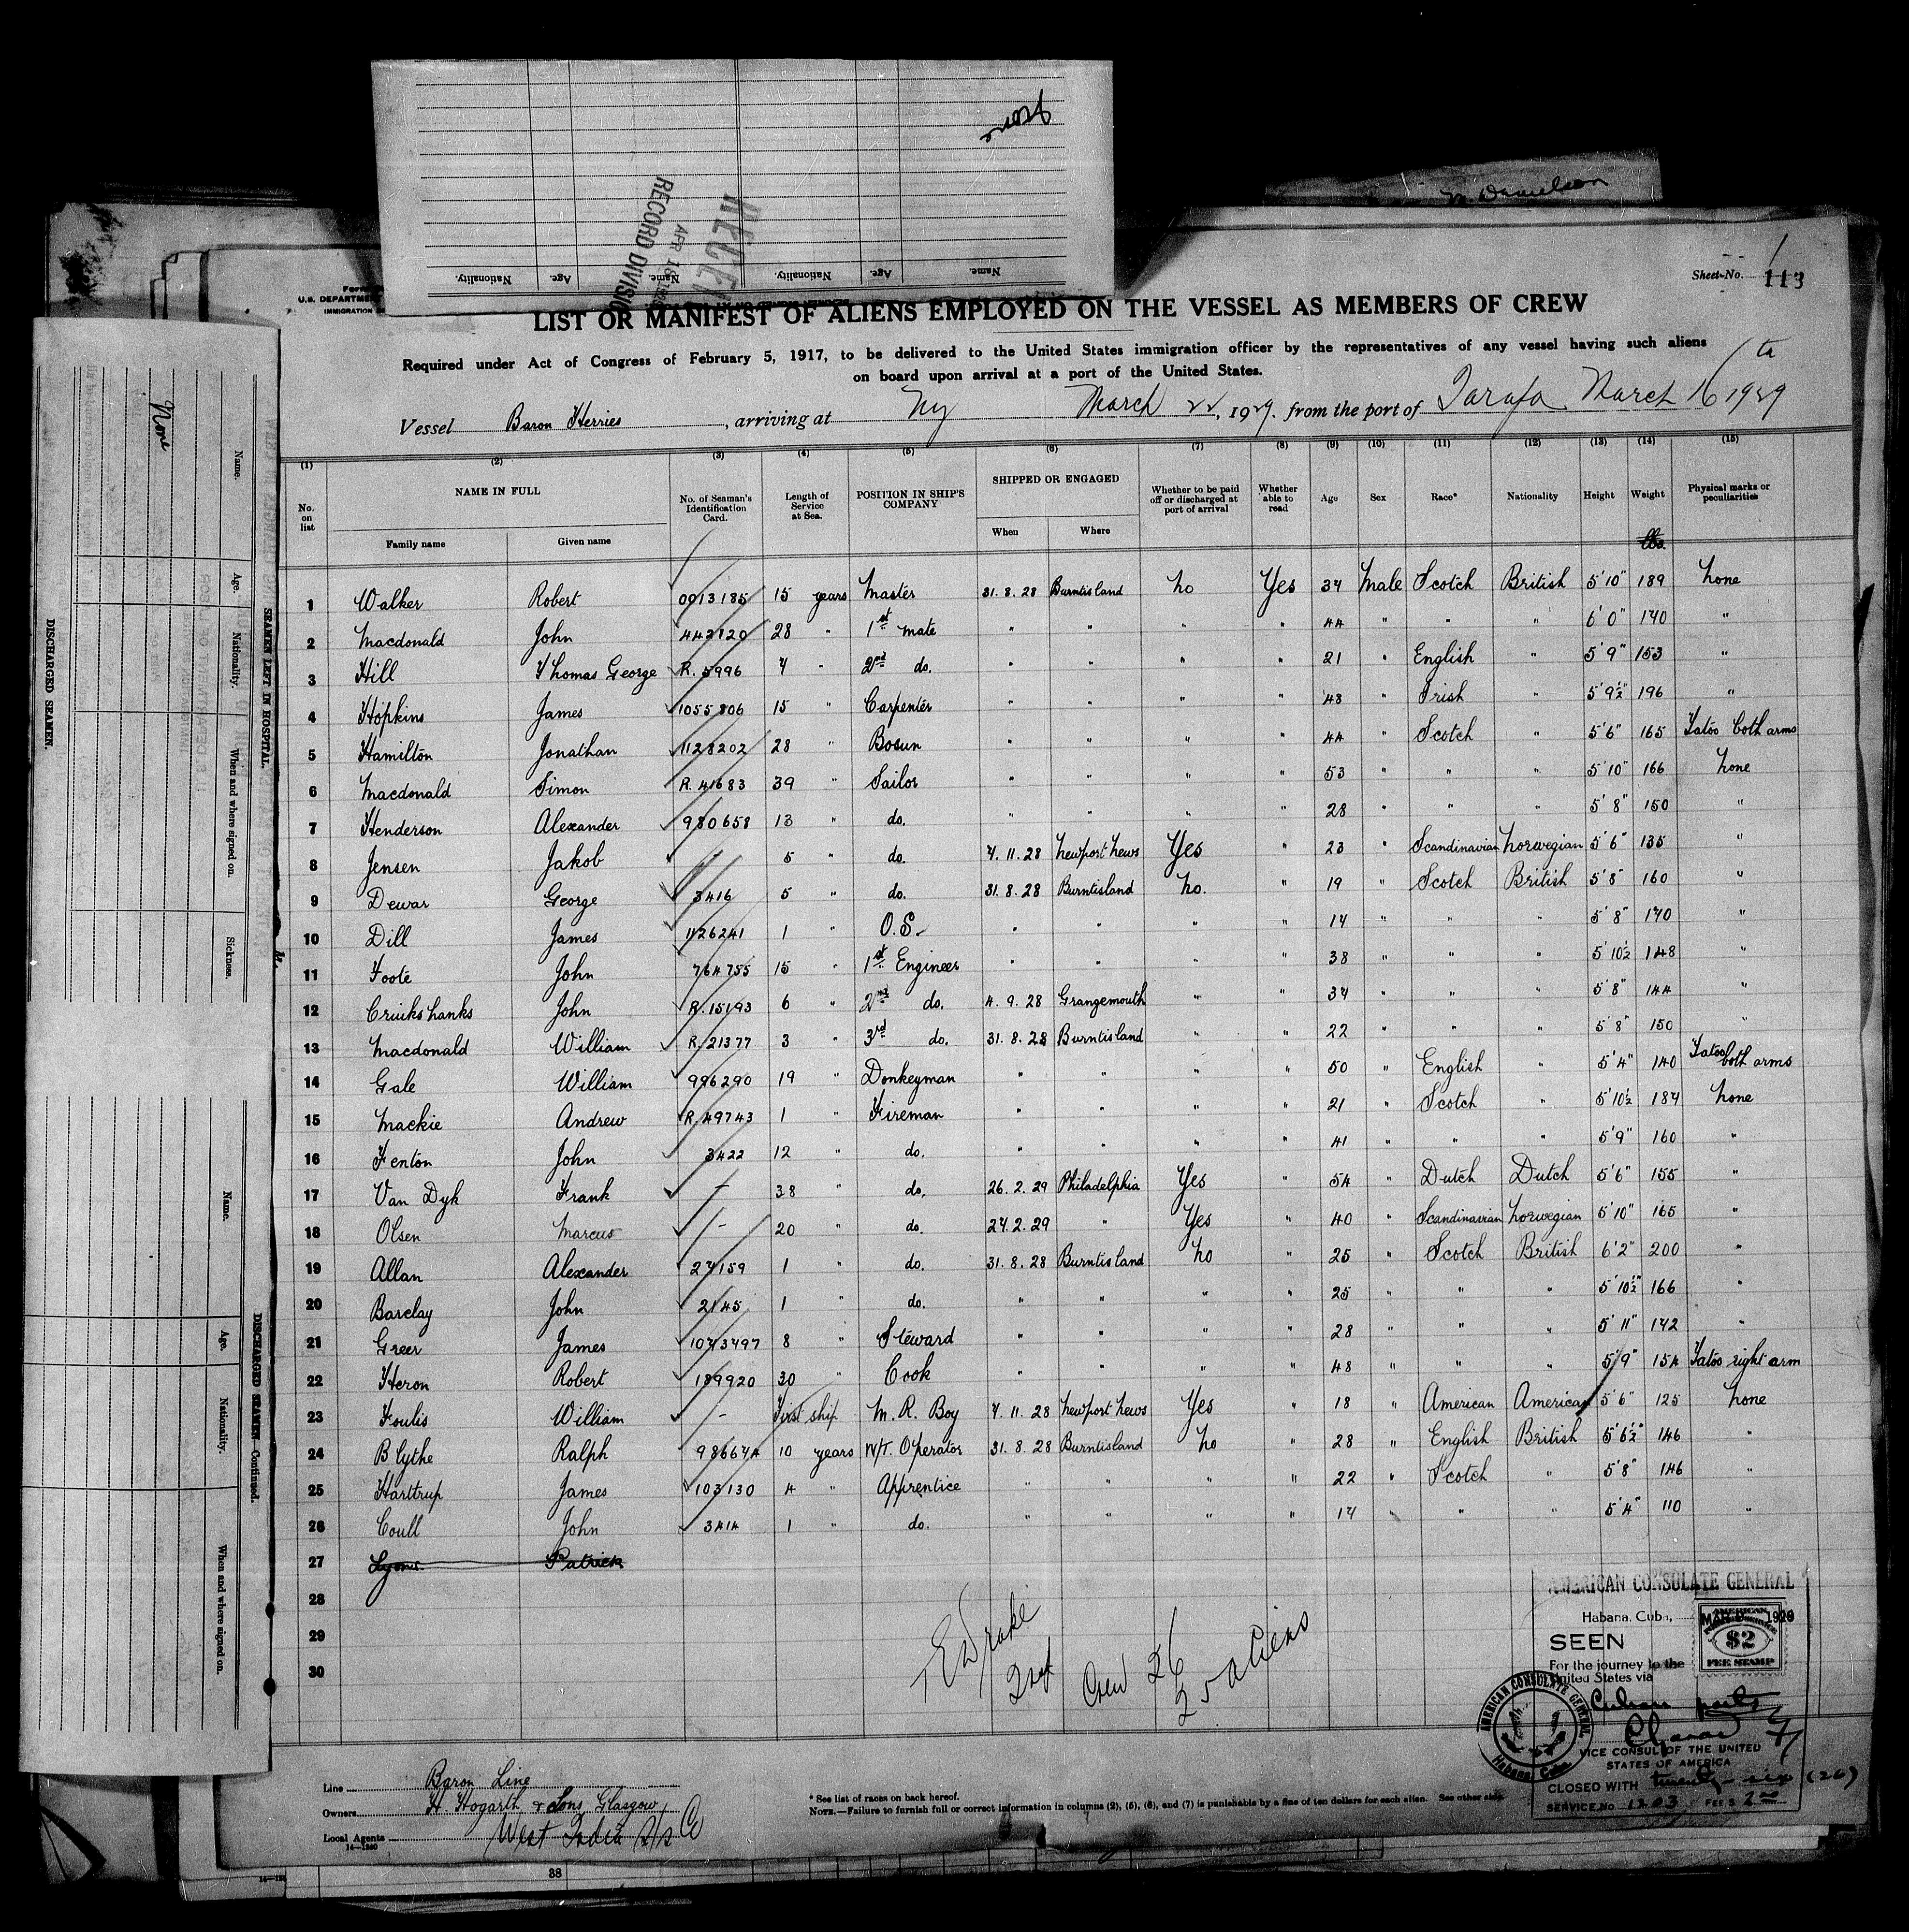 M. Danielson
RECORD DIVISION
Name. Age. Nationality. Name. Age. Nationality.
Sheet No. 1
113
U.S. DEPARTMENT
IMMIGRATION
LIST OR MANIFEST OF ALIENS EMPLOYED ON THE VESSEL AS MEMBERS OF CREW
Required under Act of Congress of February 5, 1917, to be delivered to the United States immigration officer by the representatives of any vessel having such aliens
on board upon arrival at a port of the United States.
Vessel Baron Herries, arriving at Ny March 22, 1929. from the port of Tarafa March 16th 1929
(1) (2) (3) (4) (5) (6) (7) (8) (9) (10) (11) (12) (13) (14) (15)
No. on list NAME IN FULL Family name Given name No. of Seaman's Identification Card. Length of Service at Sea. POSITION IN SHIP'S COMPANY SHIPPED OR ENGAGED When Where Whether to be paid off or discharged at port of arrival Whether able to read Age Sex Race* Nationality Height Weight lbs. Physical marks or peculiarities
1 Walker Robert 0013185 15 years Master 31.8.28 Burntisland No Yes 37 Male Scotch British 5'10" 189 None
2 Macdonald John 442120 28 " 1st Mate " " " " 44 " " " 6'0" 170 "
3 Hill Thomas George R.5996 7 " 2nd do. " " " " 21 " English " 5'9" 153 "
4 Hopkins James 1055806 15 " Carpenter " " " " 48 " Irish " 5'9½" 196 "
5 Hamilton Jonathan 1128202 28 " Bosun " " " " 44 " Scotch " 5'6" 165 Tatoo both arms
6 Macdonald Simon R.41683 39 " Sailor " " " " 53 " " " 5'10" 166 None
7 Henderson Alexander 980658 13 " do. " " " " 28 " " " 5'8" 150 "
8 Jensen Jakob - 5 " do. 7.11.28 Newport News Yes " 23 " Scandinavian Norwegian 5'6" 135 "
9 Dewar George 3416 5 " do. 31.8.28 Burntisland No. " 19 " Scotch British 5'8" 160 "
10 Dill James 1126241 1 " O.S. " " " " 17 " " " 5'8" 170 "
11 Foote John 764755 15 " 1st Engineer " " " " 38 " " " 5'10½ 148 "
12 Cruikshanks John R.15193 6 " 2nd do. 4.9.28 Grangemouth " " 37 " " " 5'8" 144 "
13 Macdonald William R.21377 3 " 3rd do. 31.8.28 Burntisland " " 22 " " " 5'8" 150 "
14 Gale William 996290 19 " Donkeyman " " " " 50 " English " 5'4" 140 Tatoo both arms
15 Mackie Andrew R.49743 1 " Fireman " " " " 21 " Scotch " 5'10½ 187 None
16 Fenton John 3422 12 " do. " " " 41 " " " 5'9" 160 "
17 Van Dyk Frank - 38 " do. 26.2.29 Philadelphia Yes " 54 " Dutch Dutch 5'6" 155 "
18 Olsen Marcus - 20 " do. 27.2.29 " Yes " 40 " Scandinavian Norwegian 5'10" 165 "
19 Allan Alexander 27159 1 " do. 31.8.28 Burntisland No " 25 " Scotch British 6'2" 200 "
20 Barclay John 2145 1 " do. " " " " 25 " " " 5'10½" 166 "
21 Greer James 1043497 8 " Steward " " " " 28 " " " 5'11" 172 "
22 Heron Robert 189920 30 " Cook " " " " 48 " " " 5'9" 154 Tatoo right arm
23 Foulis William - First ship. M.R. Boy 7.11.28 Newport News Yes " 18 " American American 5'6" 125 None
24 Blythe Ralph 986674 10 years W/T. Operator 31.8.28 Burntisland No " 28 " English British 5'6½" 146 "
25 Harttrup James 103130 4 " Apprentice " " " " 22 " Scotch " 5'8" 146 "
26 Coull John 3414 1 " do. " " " " 17 " " " 5'4" 110 "
27 Lyons Patrick
28
29
30
Crew 26
25 aliens
AMERICAN CONSULATE GENERAL
Habana, Cuba, 1929
SEEN
For the journey to the
United States via
Cuban ports
$2
FEE STAMP
AMERICAN CONSULATE GENERAL
Habana, Cuba
VICE CONSUL OF THE UNITED
STATES OF AMERICA
CLOSED WITH twenty-six (26)
SERVICE No 1203 FEE $ 2.00
Line Baron Line
Owners H. Hogarth & Sons, Glasgow
Local Agents West India S/S Co
* See list of races on back hereof.
NOTE.—Failure to furnish full or correct information in columns (2), (5), (6), and (7) is punishable by a fine of ten dollars for each alien. See other side.
38
None
Name. Age. Nationality. When and where signed on. Sickness.
SEAMEN LEFT IN HOSPITAL.
DISCHARGED SEAMEN.
Name. Age. Nationality. When and where signed on.
DISCHARGED SEAMEN—Continued.